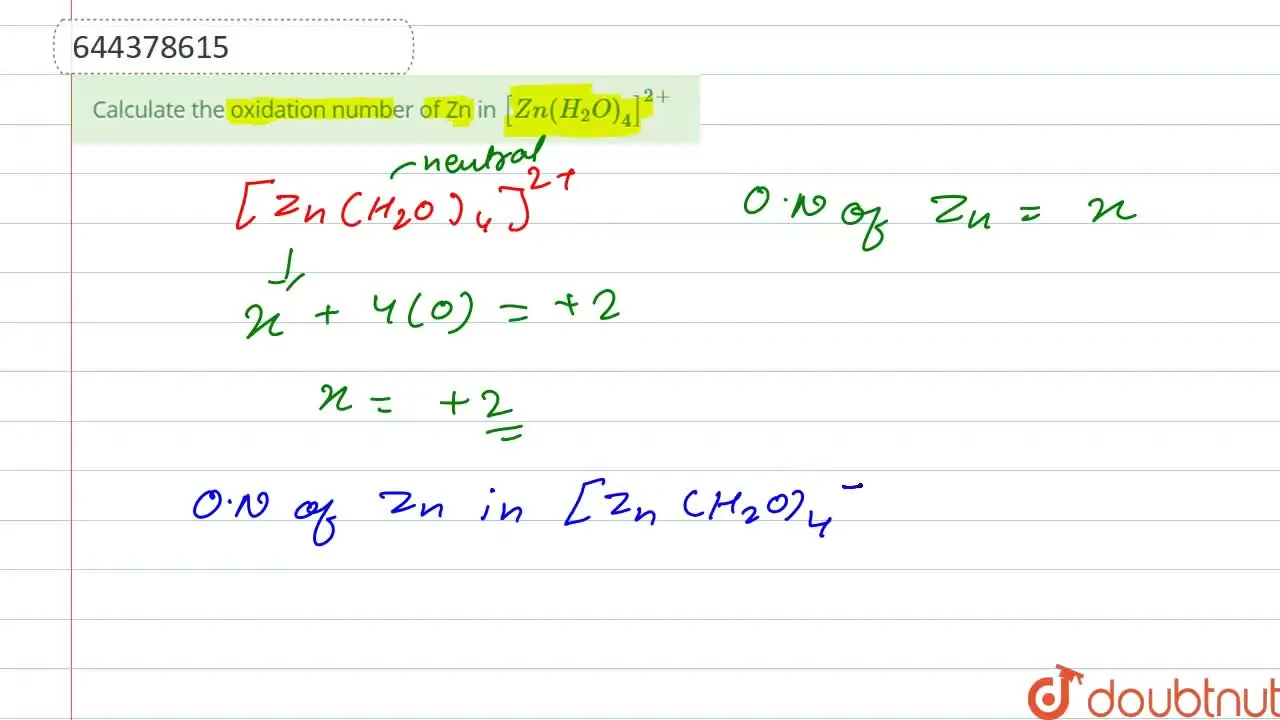 644378615
Calculate the oxidation number of Zn in [Zn(H₂O)₄]²⁺
neutral
[Zn(H₂O)₄]²⁺
O.N of Zn = x
x + 4(0) = +2
x = +2
O.N of Zn in [Zn (H₂O)₄
doubtnut